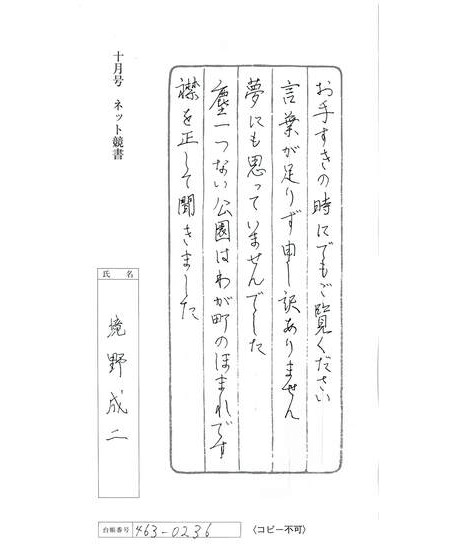 お手すきの時にでもご覧ください
言葉が足りず申し訳ありません
夢にも思っていませんでした
塵一つない公園はわが町のほまれです
襟を正して聞きました
十月号 ネット競書
氏名
境野成二
台帳番号 463-0236
〈コピー不可〉